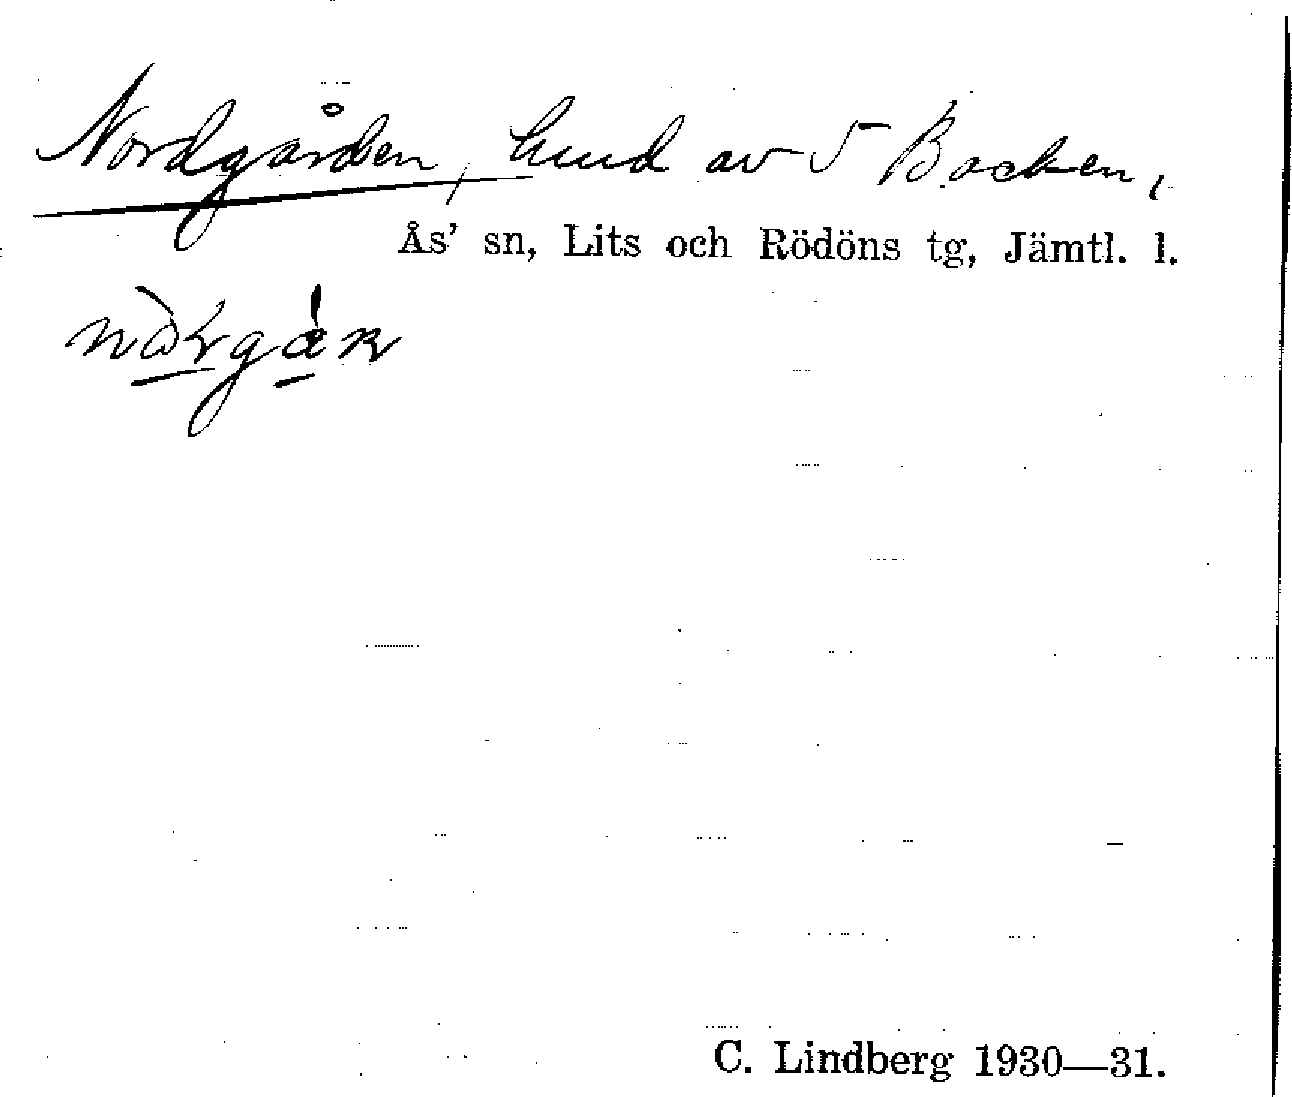 Nordgården, hmd av 5 Backen,
Ås' sn, Lits och Rödöns tg, Jämtl. l.
C. Lindberg 1930—31.